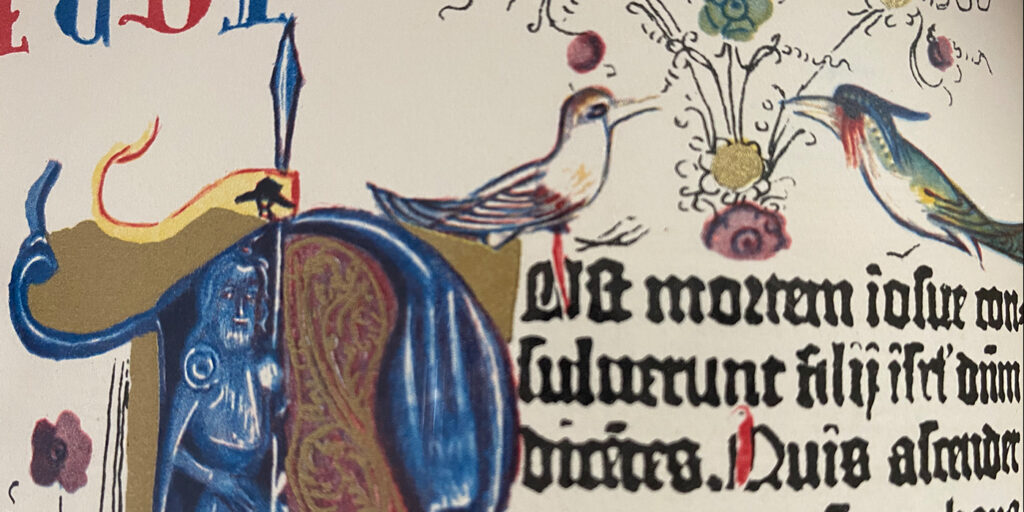 Poſt mortem ioſue con⸗
ſuluerunt filij iſrl' dn̄m
dicētes. Quis aſcendet